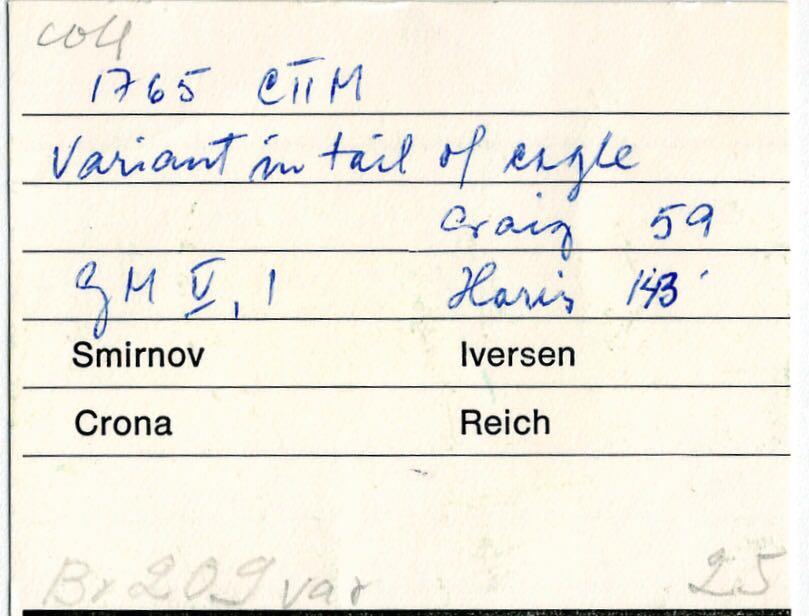 coll
1765 СПМ
Variant in tail of eagle
Craig 59
GM V, 1 Harris 143
Smirnov Iversen
Crona Reich
Br 209 var 25